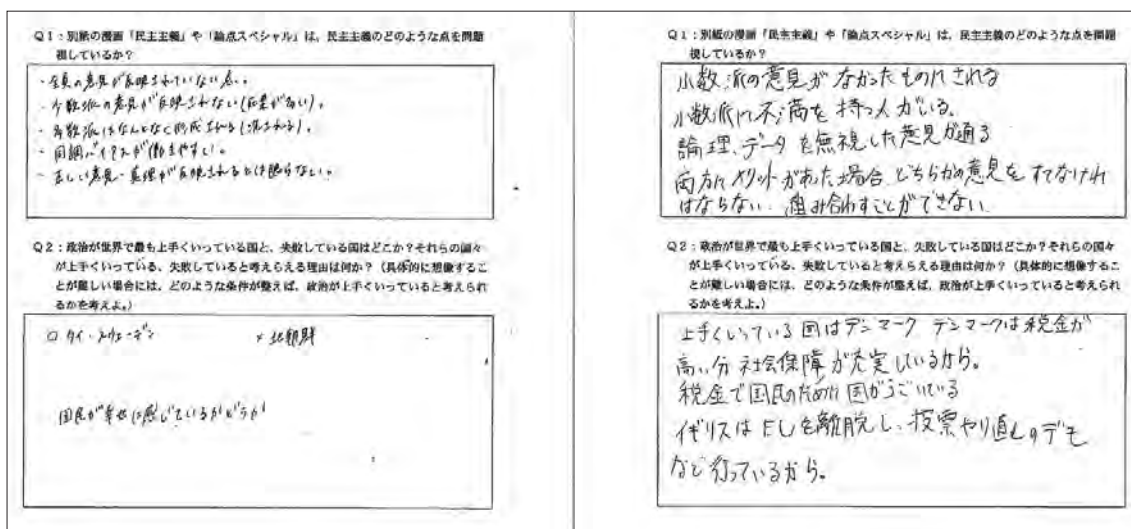 Q1：別紙の漫画「民主主義」や「論点スペシャル」は、民主主義のどのような点を問題
視しているか？
・全員の意見が反映されていない点。
・少数派の意見が反映されない(

)。
・多数派はなんとなく形成される(流される)。
・同調バイアスが働きやすい。
・正しい意見・真理が反映されるとは限らない。
Q2：政治が世界で最も上手くいっている国と、失敗している国はどこか？それらの国々
が上手くいっている、失敗していると考えらえる理由は何か？（具体的に想像するこ
とが難しい場合には、どのような条件が整えば、政治が上手くいっていると考えられ
るかを考えよ。）
○ タイ・スウェーデン　× 北朝鮮
国民が幸せに感じているかどうか
Q1：別紙の漫画「民主主義」や「論点スペシャル」は、民主主義のどのような点を問題
視しているか？
小数派の意見がなかったものにされる
小数派に不満を持つ人がいる。
論理、データを無視した意見が通る
両方にメリットがあった場合、どちらかの意見をすてなければ
はならない。組み合わすことができない
Q2：政治が世界で最も上手くいっている国と、失敗している国はどこか？それらの国々
が上手くいっている、失敗していると考えらえる理由は何か？（具体的に想像するこ
とが難しい場合には、どのような条件が整えば、政治が上手くいっていると考えられ
るかを考えよ。）
上手くいっている国はデンマーク デンマークは税金が
高い分社会保障が充実しているから。
税金で国民のために国がうごいている
イギリスはEUを離脱し、投票やり直しのデモ
など行っているから。